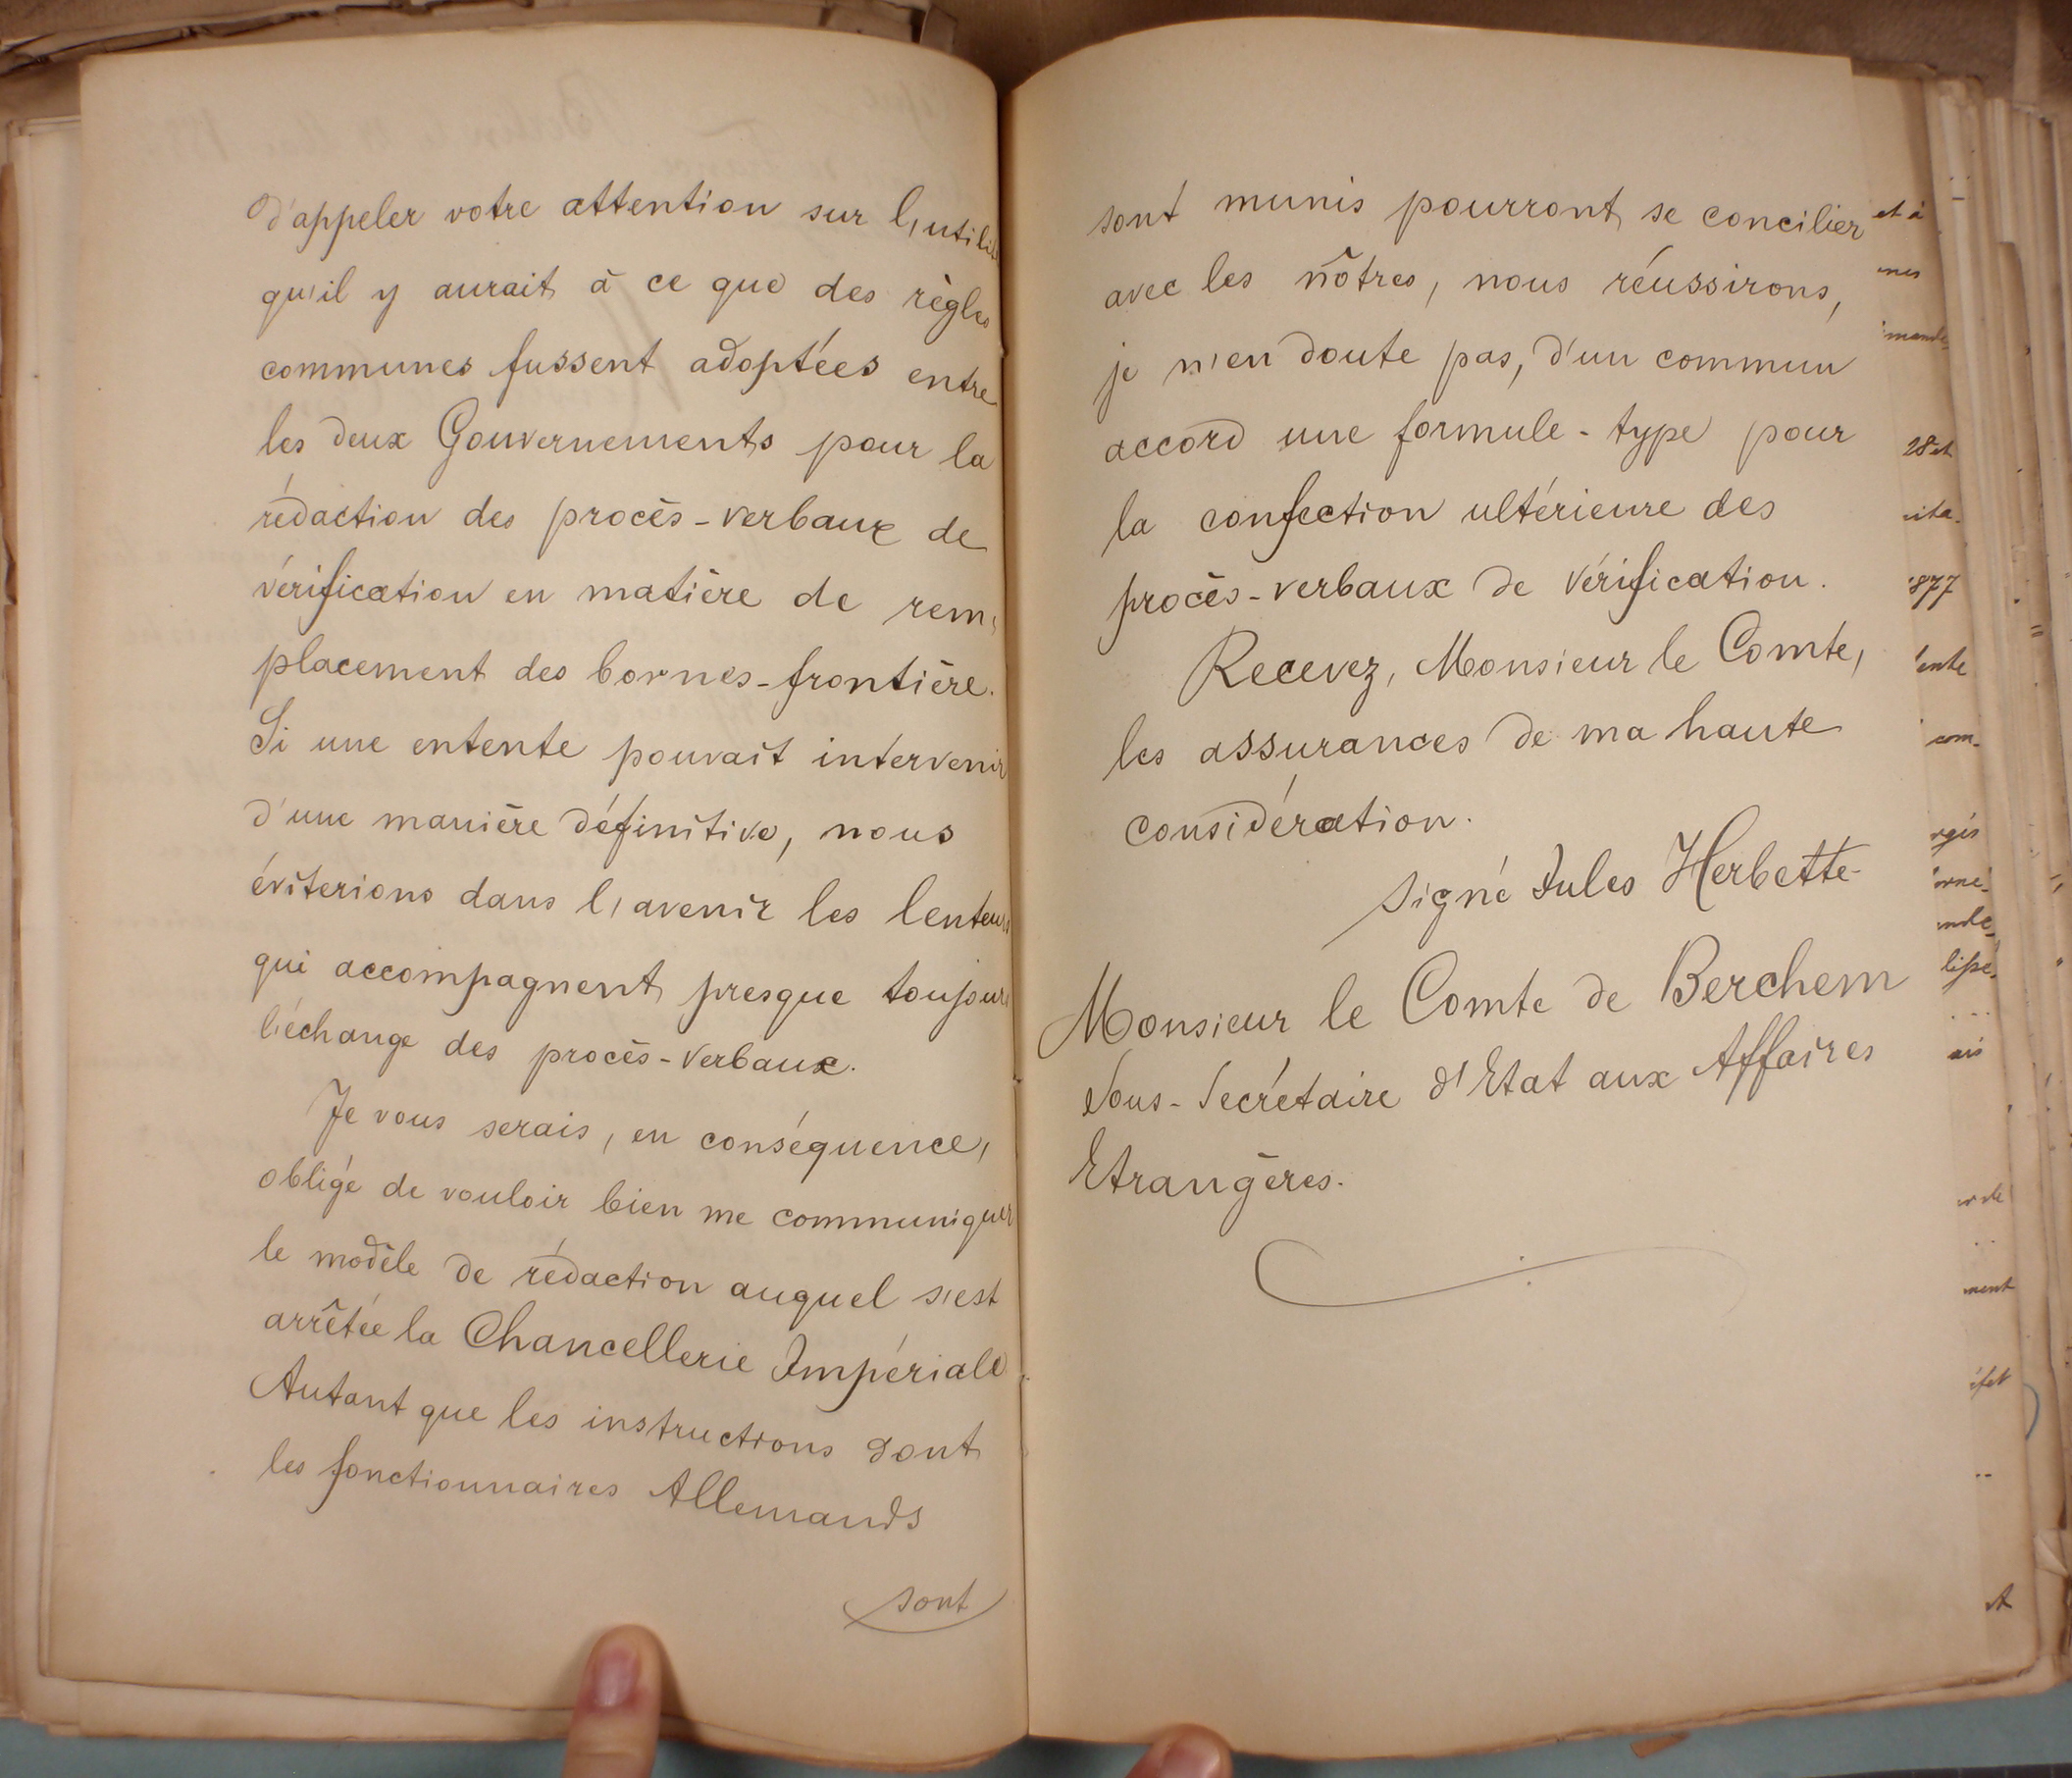 d'appeler votre attention sur l'utilité
qu'il y aurait à ce que des règles
communes fussent adoptées entre
les deux Gouvernements pour la
rédaction des procès-verbaux de
vérification en matière de rem-
placement des bornes-frontière.
Si une entente pouvait intervenir
d'une manière définitive, nous
éviterions dans l'avenir les lenteurs
qui accompagnent presque toujours
l'échange des procès-verbaux.
Je vous serais, en conséquence,
obligé de vouloir bien me communiquer
le modèle de rédaction auquel s'est
arrêtée la Chancellerie Impériale.
Autant que les instructions dont
les fonctionnaires Allemands
sont
sont munis pourront se concilier
avec les nôtres, nous réussirons,
je n'en doute pas, d'un commun
accord une formule-type pour
la confection ultérieure des
procès-verbaux de vérification.
Recevez, Monsieur le Comte,
les assurances de ma haute
considération.
signé Jules Herbette
Monsieur le Comte de Berchem
Sous-Secrétaire d'Etat aux Affaires
Etrangères.
et à
28 et
1877
com-
ment
et